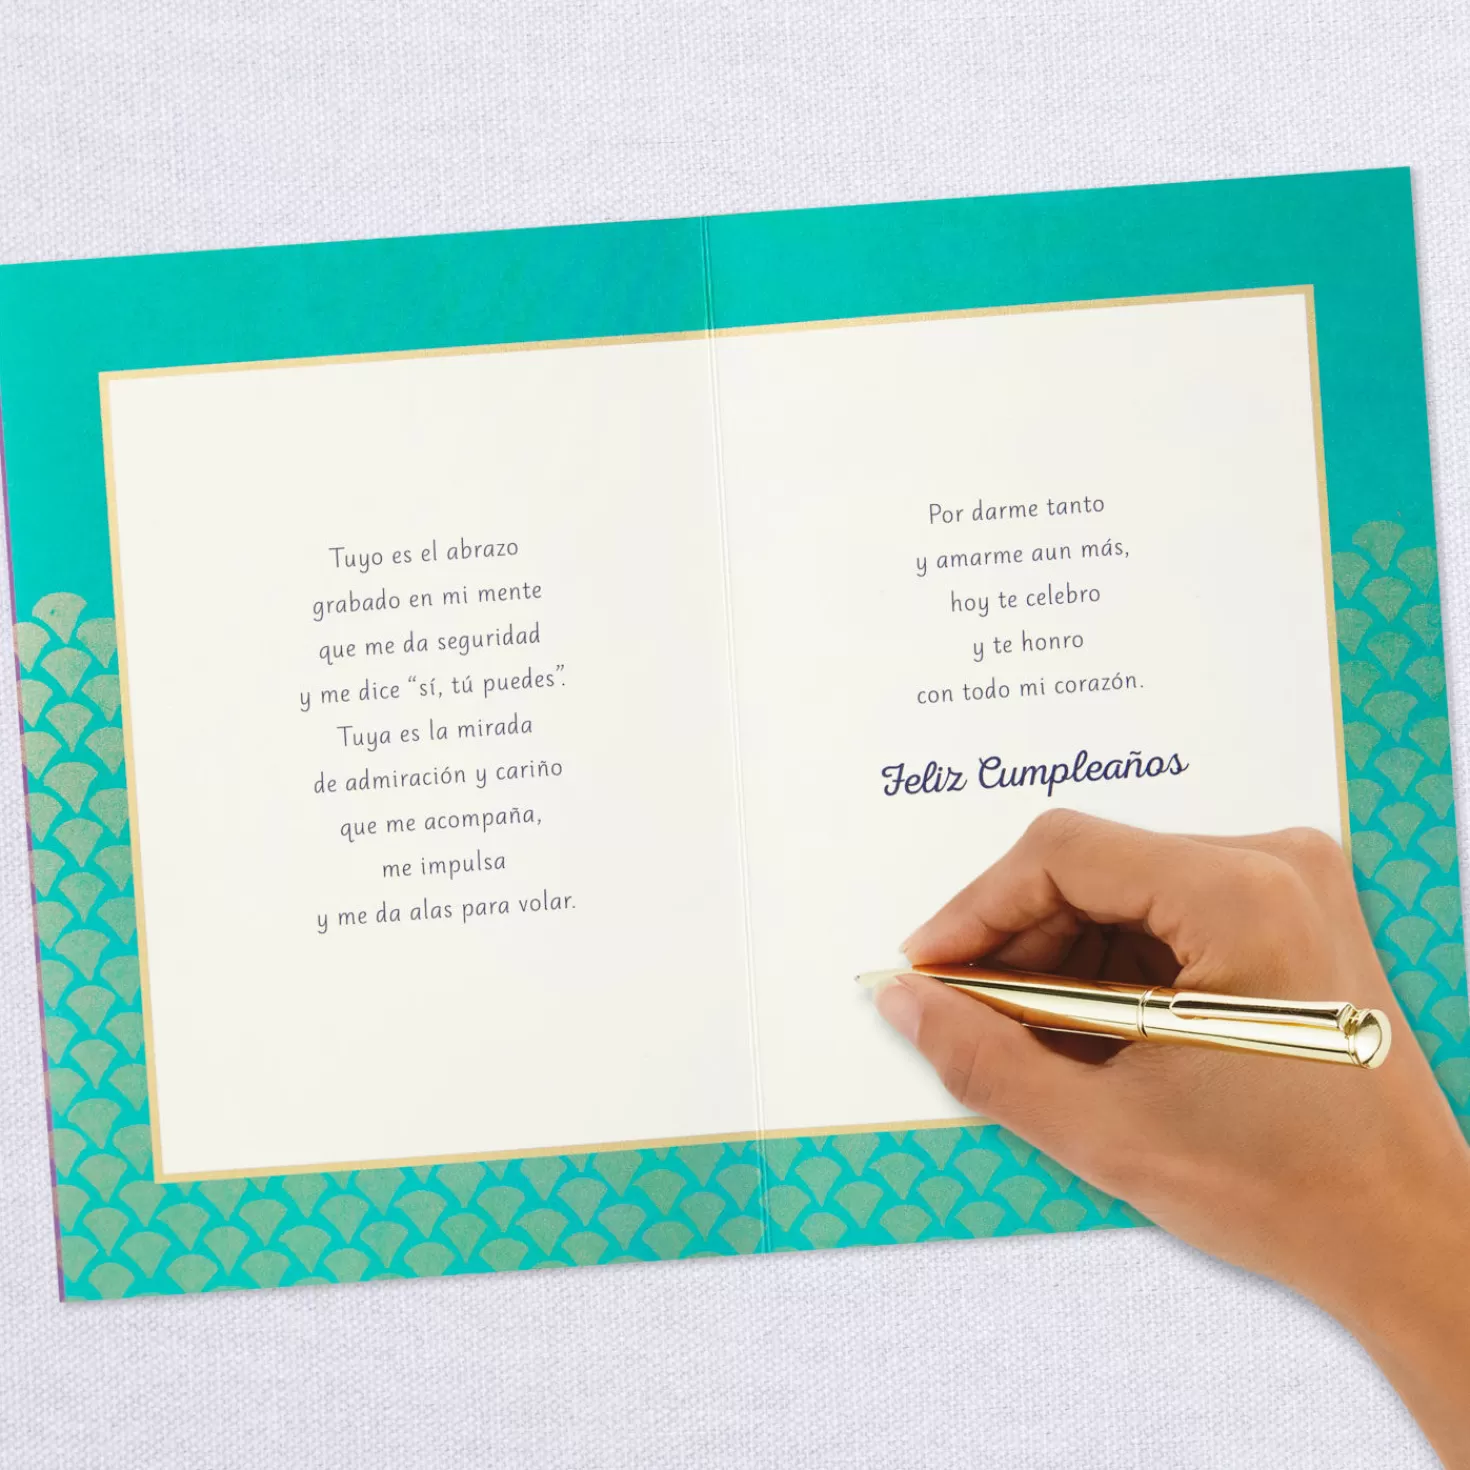 Tuyo es el abrazo
grabado en mi mente
que me da seguridad
y me dice “sí, tú puedes”.
Tuya es la mirada
de admiración y cariño
que me acompaña,
me impulsa
y me da alas para volar.
Por darme tanto
y amarme aun más,
hoy te celebro
y te honro
con todo mi corazón.
Feliz Cumpleaños